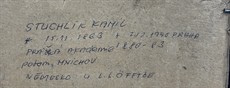 STUCHLÍK KAMIL
* 15.11 1863 † 7.2.1940 PRAHA
PRAŽSKÁ akademie 1880-83
potom, MNICHOV
NĚMECKO u L.